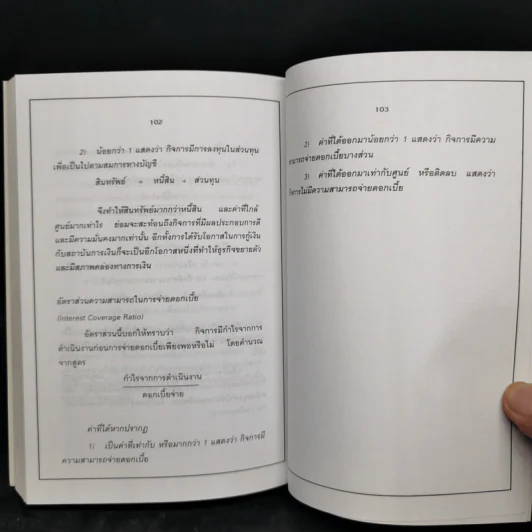 102
2) น้อยกว่า 1 แสดงว่า กิจการมีการลงทุนในส่วนทุน
เพื่อเป็นไปตามสมการทางบัญชี
สินทรัพย์ = หนี้สิน + ส่วนทุน
จึงทำให้สินทรัพย์มากกว่าหนี้สิน และค่าที่ใกล้
ศูนย์มากเท่าไร ย่อมจะสะท้อนถึงกิจการที่มีผลประกอบการดี
และมีความมั่นคงมากเท่านั้น อีกทั้งการได้รับโอกาสในการกู้เงิน
กับสถาบันการเงินก็จะเป็นอีกโอกาสหนึ่งที่ทำให้ธุรกิจขยายตัว
และมีสภาพคล่องทางการเงิน
อัตราส่วนความสามารถในการจ่ายดอกเบี้ย
(Interest Coverage Ratio)
อัตราส่วนนี้บอกให้ทราบว่า กิจการมีกำไรจากการ
ดำเนินงานก่อนการจ่ายดอกเบี้ยเพียงพอหรือไม่ โดยคำนวณ
จากสูตร
กำไรจากการดำเนินงาน
ดอกเบี้ยจ่าย
ค่าที่ได้หากปรากฏ
1) เป็นค่าที่เท่ากับ หรือมากกว่า 1 แสดงว่า กิจการมี
ความสามารถจ่ายดอกเบี้ย
103
2) ค่าที่ได้ออกมาน้อยกว่า 1 แสดงว่า กิจการมีความ
สามารถจ่ายดอกเบี้ยบางส่วน
3) ค่าที่ได้ออกมาเท่ากับศูนย์ หรือติดลบ แสดงว่า
กิจการไม่มีความสามารถจ่ายดอกเบี้ย